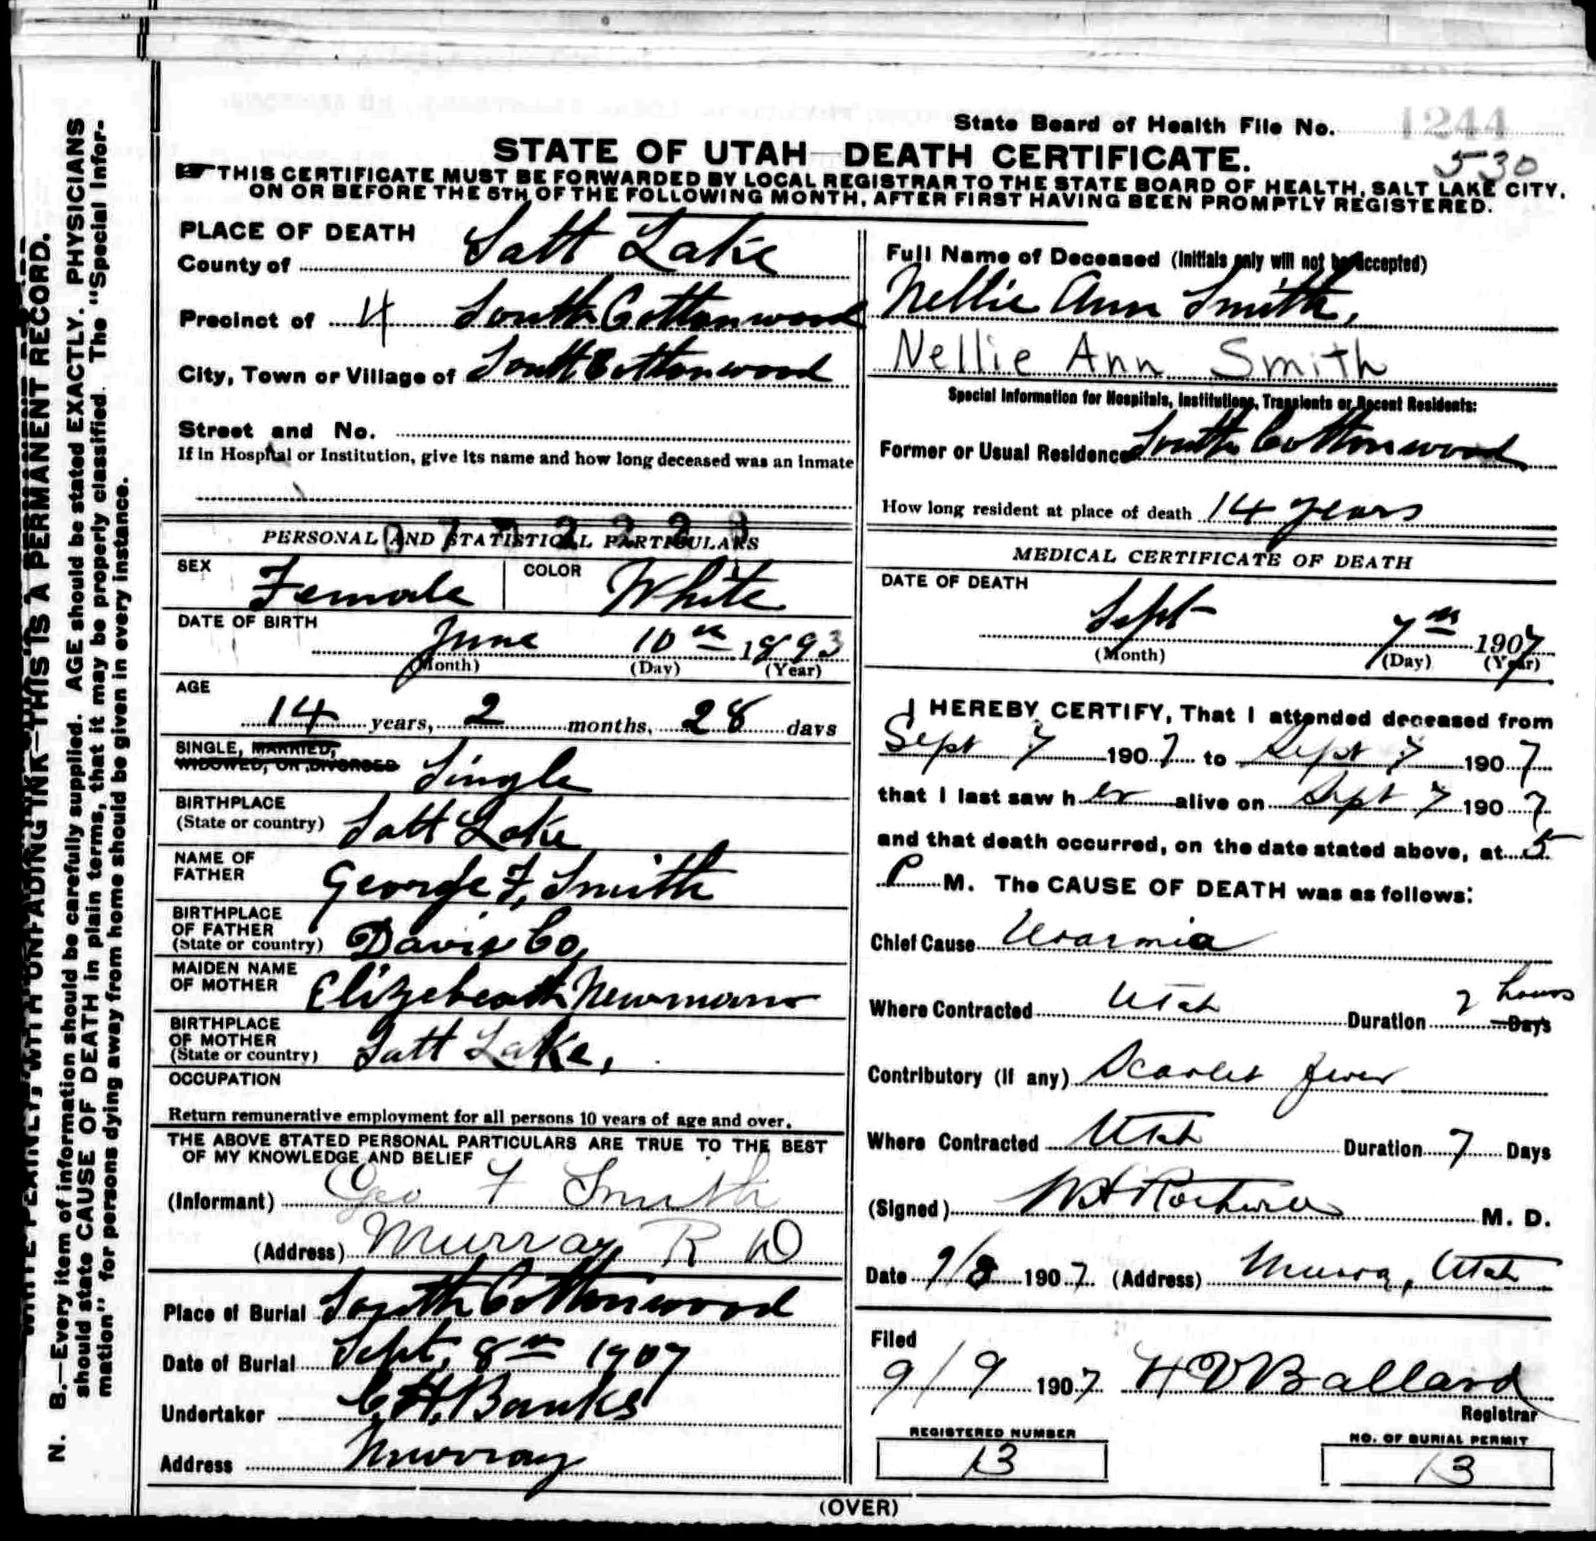 State Board of Health File No. 1244
530
STATE OF UTAH—DEATH CERTIFICATE.
☞THIS CERTIFICATE MUST BE FORWARDED BY LOCAL REGISTRAR TO THE STATE BOARD OF HEALTH, SALT LAKE CITY.
ON OR BEFORE THE 5TH OF THE FOLLOWING MONTH, AFTER FIRST HAVING BEEN PROMPTLY REGISTERED.
PLACE OF DEATH
County of Salt Lake
Precinct of 4 South Cottonwood
City, Town or Village of South Cottonwood
Street and No.
If in Hospital or Institution, give its name and how long deceased was an inmate
PERSONAL AND STATISTICAL PARTICULARS
SEX Female COLOR White
DATE OF BIRTH
June 10th 1893
(Month) (Day) (Year)
AGE
14 years, 2 months, 28 days
SINGLE, MARRIED,
WIDOWED, OR DIVORCED Single
BIRTHPLACE
(State or country) Salt Lake
NAME OF
FATHER George F, Smith
BIRTHPLACE
OF FATHER
(State or country) Davis Co,
MAIDEN NAME
OF MOTHER Elizebeath Newmann
BIRTHPLACE
OF MOTHER
(State or country) Salt Lake,
OCCUPATION
Return remunerative employment for all persons 10 years of age and over.
THE ABOVE STATED PERSONAL PARTICULARS ARE TRUE TO THE BEST
OF MY KNOWLEDGE AND BELIEF
(Informant) Geo F Smith
(Address) Murray R D
Place of Burial South Cottonwood
Date of Burial Sept, 8th 1907
Undertaker C, H, Banks
Address Murray
Full Name of Deceased (Initials only will not be accepted)
Nellie Ann Smith,
Nellie Ann Smith
Special Information for Hospitals, Institutions, Transients or Recent Residents:
Former or Usual Residence South Cottonwood
How long resident at place of death 14 years
MEDICAL CERTIFICATE OF DEATH
DATE OF DEATH
Sept 7th 1907
(Month) (Day) (Year)
I HEREBY CERTIFY, That I attended deceased from
Sept 7 1907 to Sept 7 1907
that I last saw her alive on Sept 7 1907
and that death occurred, on the date stated above, at 5
P M. The CAUSE OF DEATH was as follows:
Chief Cause Uraemia
Where Contracted Utah Duration 2 hours Days
Contributory (if any) Scarlet fever
Where Contracted Utah Duration 7 Days
(Signed) M. D.
Date 9/8 1907. (Address) Murray, Utah
Filed
9/9 1907. H D Ballard
Registrar
REGISTERED NUMBER
13
NO. OF BURIAL PERMIT
13
(OVER)
WRITE PLAINLY, WITH UNFADING INK—THIS IS A PERMANENT RECORD.
N. B.—Every item of information should be carefully supplied. AGE should be stated EXACTLY. PHYSICIANS
should state CAUSE OF DEATH in plain terms, that it may be properly classified. The "Special Infor-
mation" for persons dying away from home should be given in every instance.